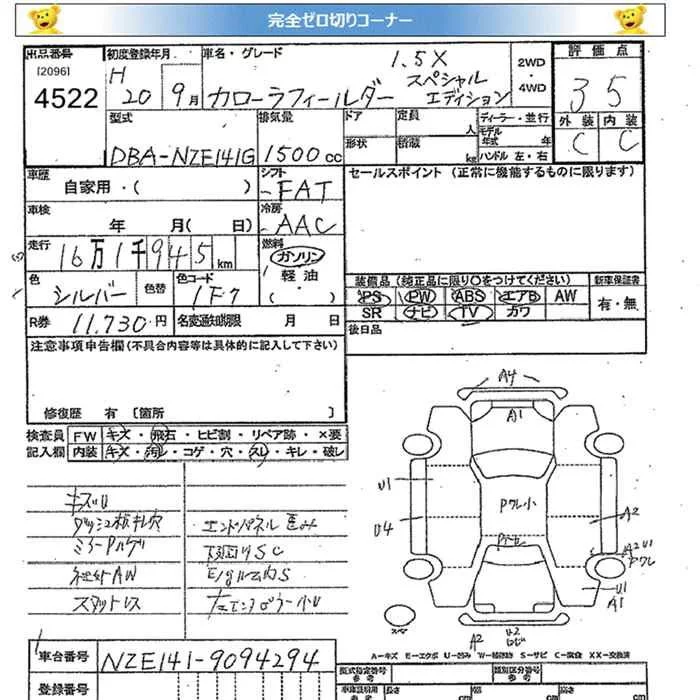 完全ゼロ切りコーナー
出品番号 初度登録年月 車名・グレード 1.5X 2WD・4WD 評価点
[2096] H スペシャル
4522 20 9月 カローラフィールダー エディション 3 5
型式 排気量 ドア 定員 人 ディーラー・並行 外装 内装
DBA-NZE141G 1500cc 形状 積載 kg モデル年式 年 C C
ハンドル 左・右
車歴 自家用・( ) シフト FAT セールスポイント (正常に機能するものに限ります)
車検 年 月( 日) 冷房 AAC
走行 16万1千945km 燃料 ガソリン
軽油
( )
色 シルバー 色替 色コード 1F7
装備品 (純正品に限り○をつけてください) 新車保証書
PS PW ABS エアB AW 有・無
SR ナビ TV カワ
R券 11,730円 名変通知期限 月 日 後日品
注意事項申告欄 (不具合内容等は具体的に記入して下さい)
修復歴 有 [箇所 ]
検査員 FW キズ・飛石・ヒビ割・リペア跡・×要
記入欄 内装 キズ・汚れ・コゲ・穴・スレ・キレ・破レ
キズU
ダッシュ板ホレ穴 エンドパネル凹み
ミラーPハゲ 下回りSC
社外AW E/gルーム内S
スタットレス
A4
A1
U1
Pワレ小
U4 A2
A2 U1
Pワレ
U1
A1
スペア
A2 U2
A-キズ E-エクボ U-凹み W-補修跡 S-サビ C-腐食 XX-交換済
車台番号 NZE141-9094294 型式指定番号 参考 類別区分番号 参考
登録番号 車庫証明用 参考 長さ cm 幅 cm 高さ cm